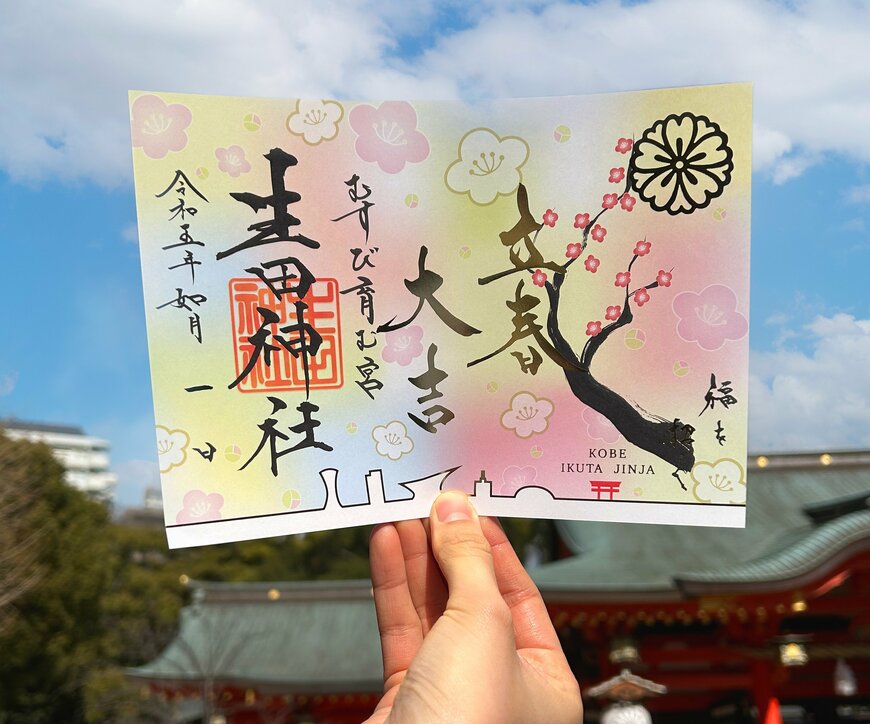 福き
立春
大吉
むすび育む宮
生田神社
令和五年如月
一日
KOBE
IKUTA JINJA